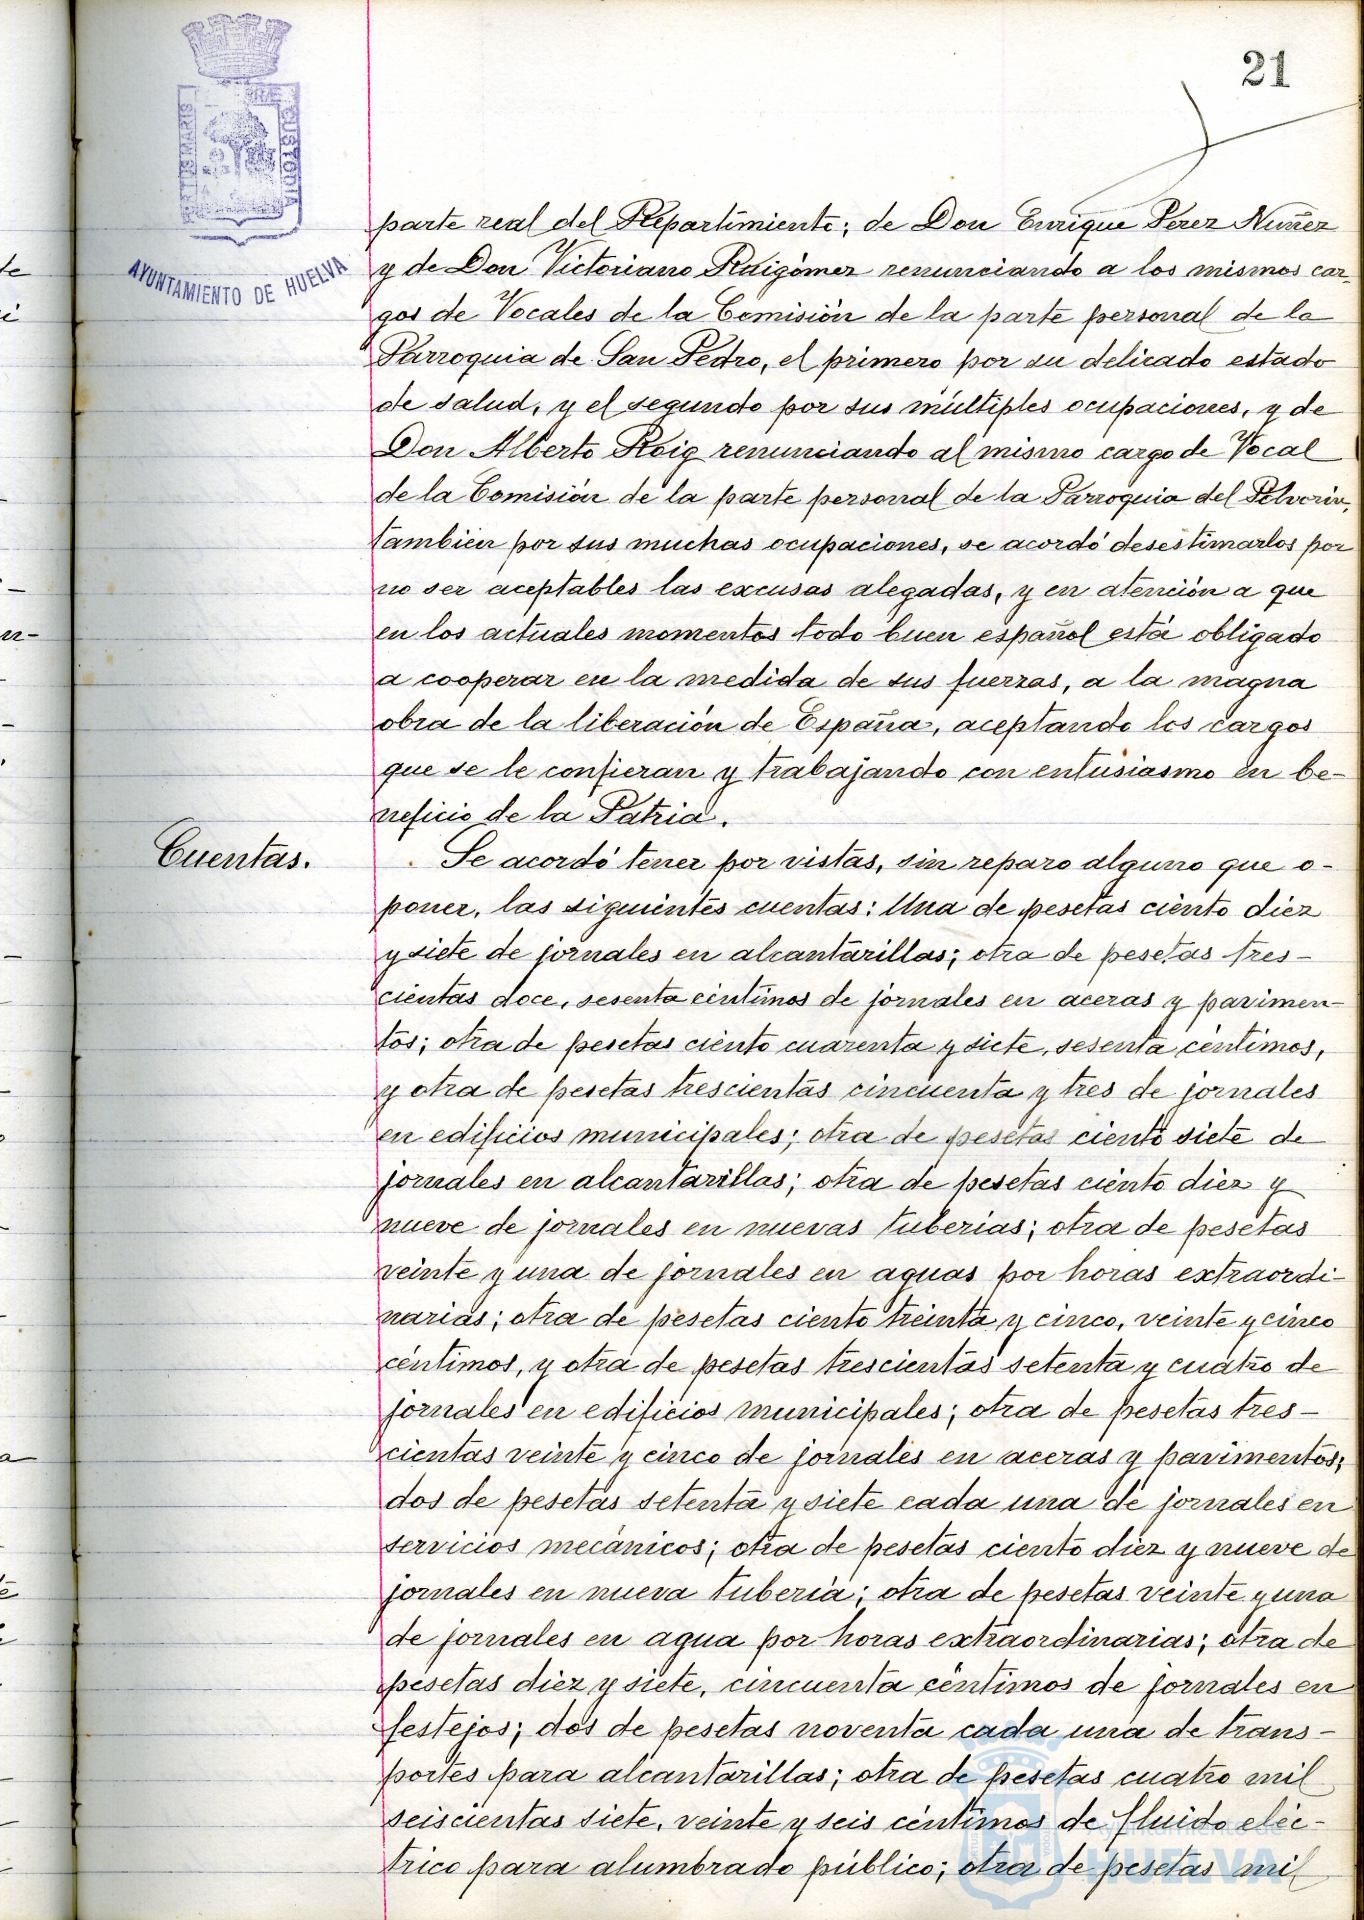 21
PORTUS MARIS
CUSTODIA
AYUNTAMIENTO DE HUELVA
parte real del Repartimiento; de Don Enrique Perez Nuñez
y de Don Victoriano Ruigómez renunciando a los mismos car-
gos de Vocales de la Comisión de la parte personal de la
Parroquia de San Pedro, el primero por su delicado estado
de salud, y el segundo por sus múltiples ocupaciones, y de
Don Alberto Roig renunciando al mismo cargo de Vocal
de la Comisión de la parte personal de la Parroquia del Polvorin,
tambien por sus muchas ocupaciones, se acordó desestimarlos por
no ser aceptables las excusas alegadas, y en atención a que
en los actuales momentos todo buen español está obligado
a cooperar en la medida de sus fuerzas, a la magna
obra de la liberación de España, aceptando los cargos
que se le confieran y trabajando con entusiasmo en be-
neficio de la Patria.
Cuentas.
Se acordó tener por vistas, sin reparo alguno que o-
poner, las siguientes cuentas: Una de pesetas ciento diez
y siete de jornales en alcantarillas; otra de pesetas tres-
cientas doce, sesenta céntimos de jornales en aceras y pavimen-
tos; otra de pesetas ciento cuarenta y siete, sesenta céntimos,
y otra de pesetas trescientas cincuenta y tres de jornales
en edificios municipales; otra de pesetas ciento siete de
jornales en alcantarillas; otra de pesetas ciento diez y
nueve de jornales en nuevas tuberias; otra de pesetas
veinte y una de jornales en aguas por horas extraordi-
narias; otra de pesetas ciento treinta y cinco, veinte y cinco
céntimos, y otra de pesetas trescientas setenta y cuatro de
jornales en edificios municipales; otra de pesetas tres-
cientas veinte y cinco de jornales en aceras y pavimentos;
dos de pesetas setenta y siete cada una de jornales en
servicios mecánicos; otra de pesetas ciento diez y nueve de
jornales en nueva tuberia; otra de pesetas veinte y una
de jornales en agua por horas extraordinarias; otra de
pesetas diez y siete, cincuenta céntimos de jornales en
festejos; dos de pesetas noventa cada una de trans-
portes para alcantarillas; otra de pesetas cuatro mil
seiscientas siete, veinte y seis céntimos de fluido eléc-
trico para alumbrado público; otra de pesetas mil
Ayuntamiento de
HUELVA